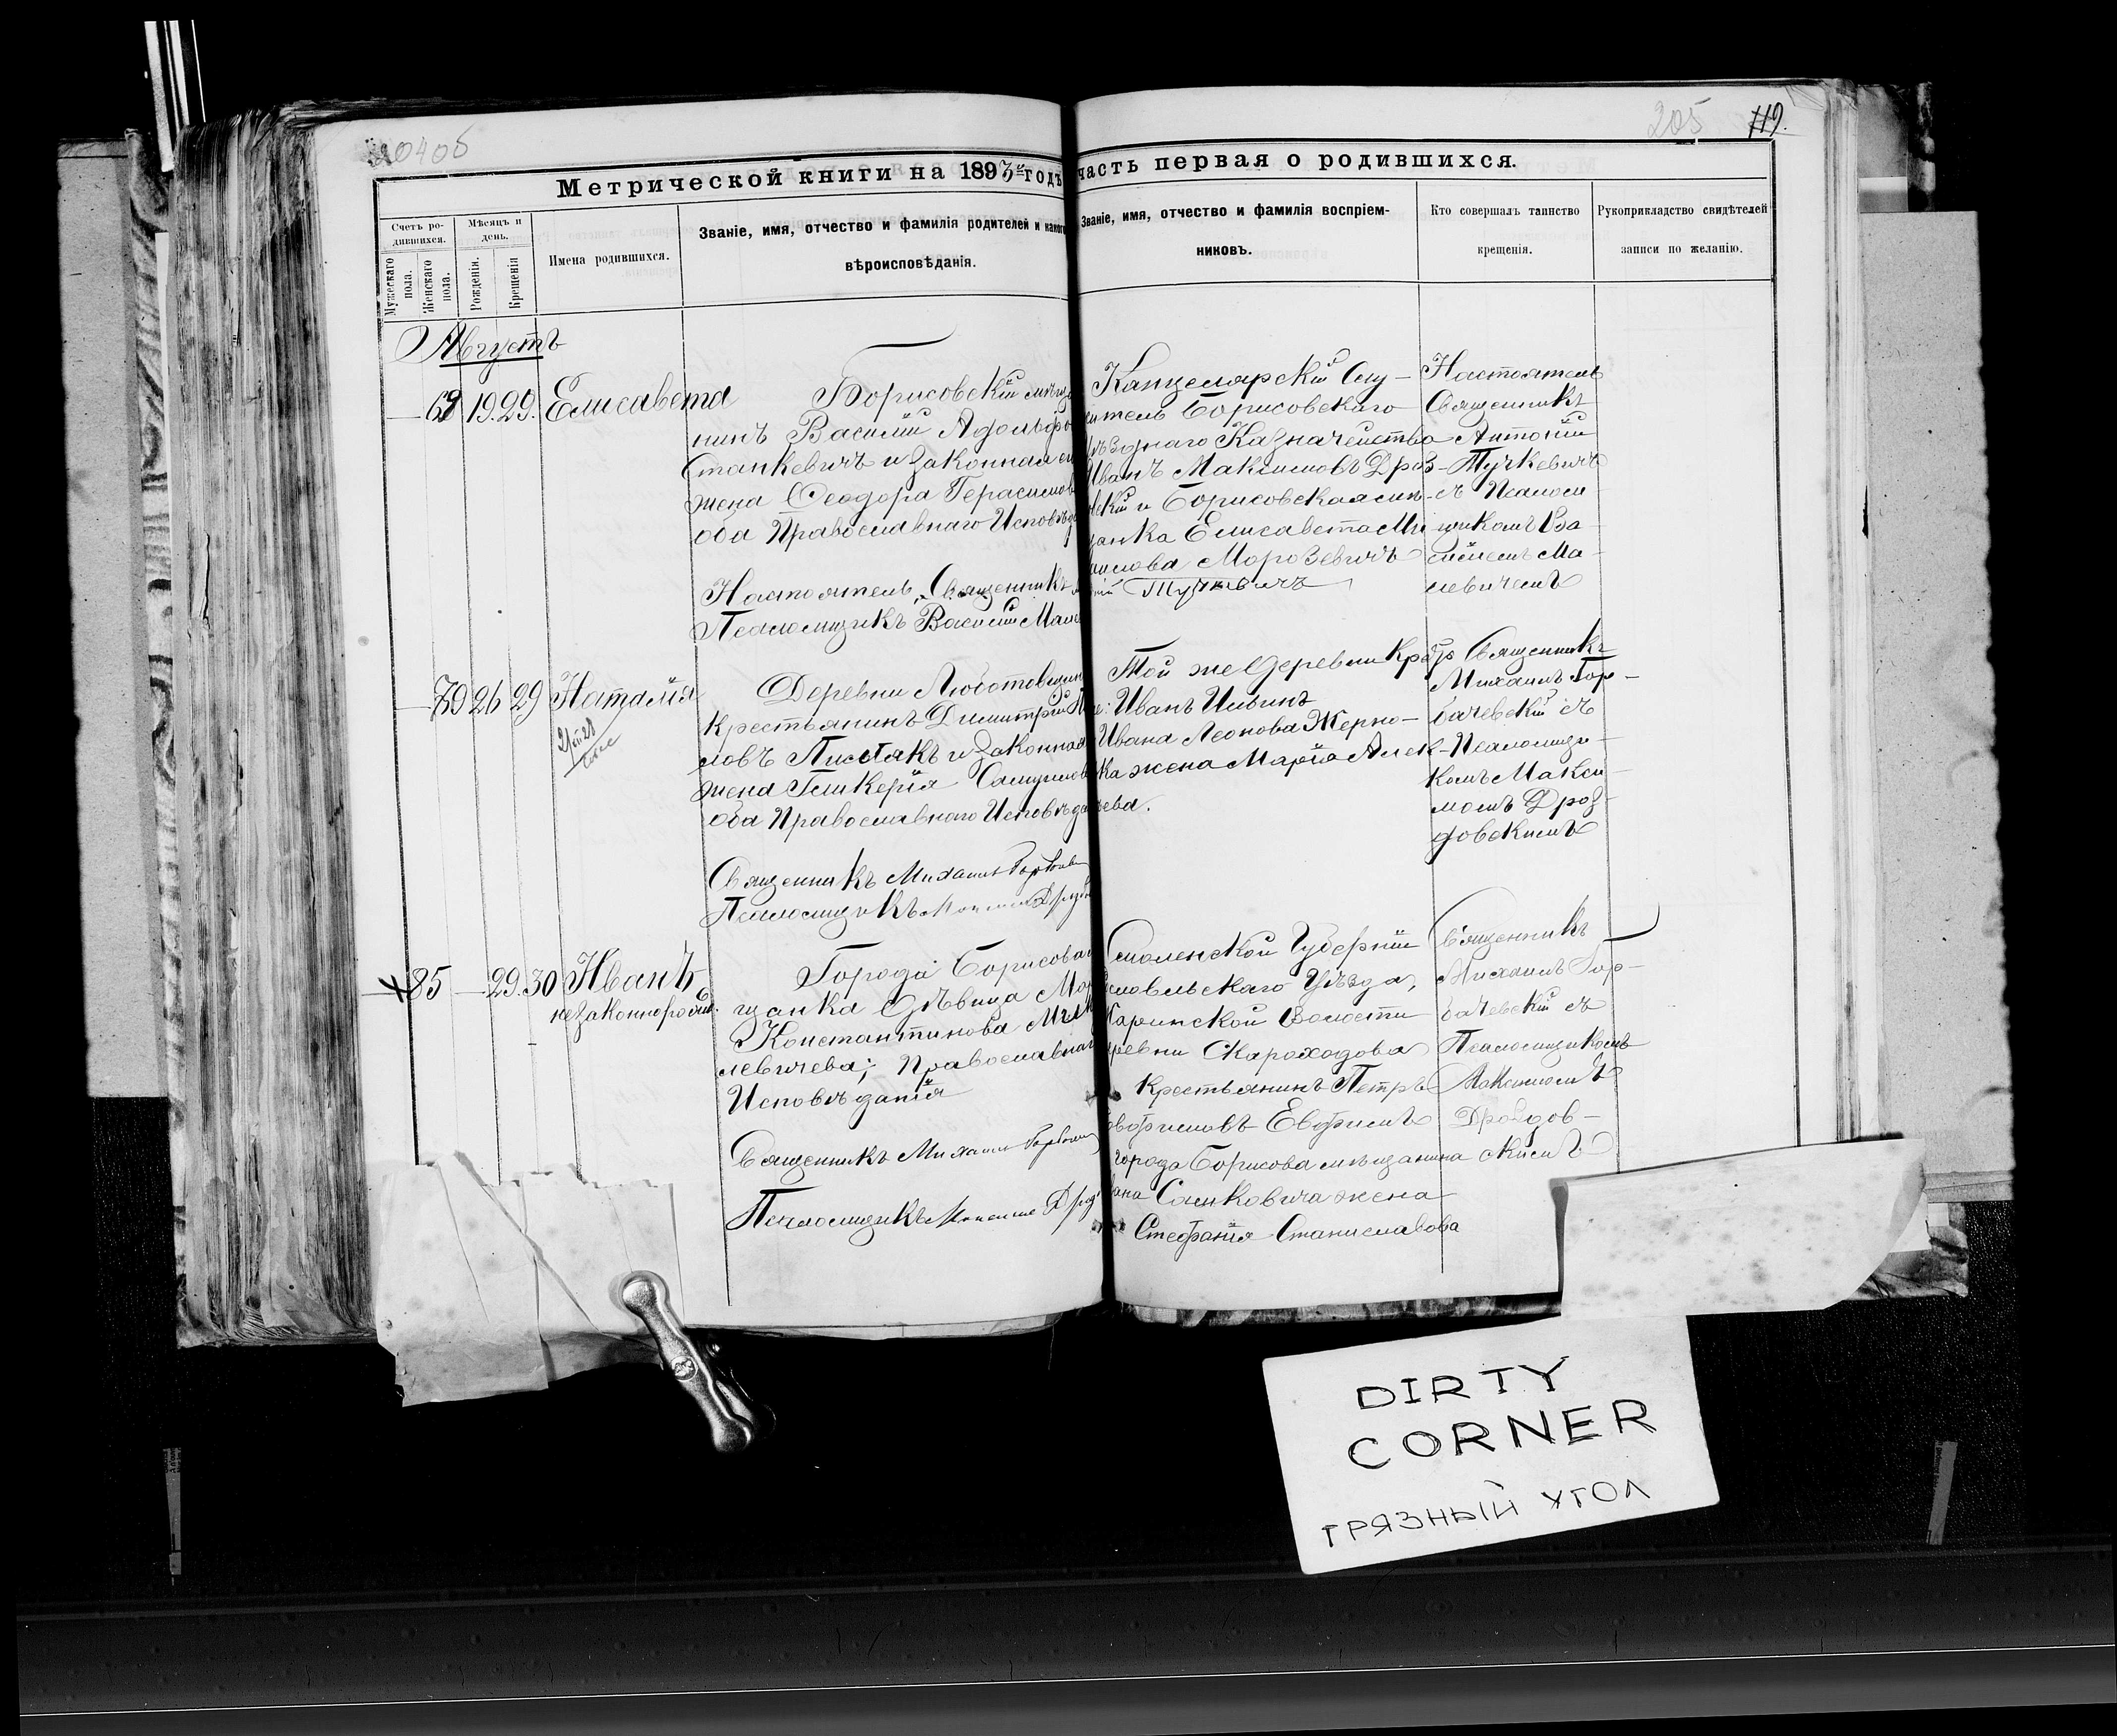 205
119.
Метрической книги на 1893й годъ
часть первая о родившихся.
Счетъ ро-
дившихся.
Мужескаго пола.
Женскаго пола.
Мѣсяцъ и
день.
Рожденія.
Крещенія
Имена родившихся.
Званіе, имя, отчество и фамилія родителей и какого
вѣроисповѣданія.
Званіе, имя, отчество и фамилія воспріем-
никовъ.
Кто совершалъ таинство
крещенія.
Рукоприкладство свидѣтелей
записи по желанію.
Августъ
19. 29. Елисавета
Борисовскій мѣща
нинъ Василій Адольфо
Станкевичъ и законная е
жена Ѳеодора Герасимов
оба Православнаго Исповѣд
Настоятель, Священникъ
Псаломщикъ Василій Мал
Канцелярскій Слу-
житель Борисовскаго
Уѣзднаго Казначейства
Иванъ Максимовъ Дроз-
скій и Борисовская мѣ
щанка Елисавета
Морозевичъ
Тучкевичъ
Настоятель
Священникъ
Антоній
Тучкевичъ
съ Псаломщи
комъ Ва
силіемъ Ма-
левичемъ
79 26 29 Наталія
Деревни
Крестьянинъ Димитрій
ловъ и законная
жена Гликерія Самуилов
оба Православнаго Исповѣда
Священникъ Михаилъ Горбачев
Псаломщикъ Максимъ Дроздов
Той же деревни Кр
Иванъ
Ивана Леонова Жерно-
ка жена Марія Алек
ѣева.
Священникъ
Михаилъ Гор-
бачевскій съ
Псаломщи-
комъ Макси-
момъ Дроз-
довскимъ
85 29. 30 Иванъ
незаконнорож.
Города Борисова
щанка дѣвица Мар
Константинова
левичева; Православнаг
Исповѣданія
Священникъ Михаилъ Горбачев
Псаломщикъ Максимъ Дрозд
Смоленской Губерніи
Рославльскаго Уѣзда,
Волости
деревни Скароходова
Крестьянинъ Петръ
Евфимовъ Евфимъ
города Борисова мѣщанина
жена
Стефанія Станиславова
Священникъ
Михаилъ Гор-
бачевскій съ
Псаломщикомъ
Максимомъ
Дроздов-
скимъ
DIRTY
CORNER
ГРЯЗНЫЙ УГОЛ